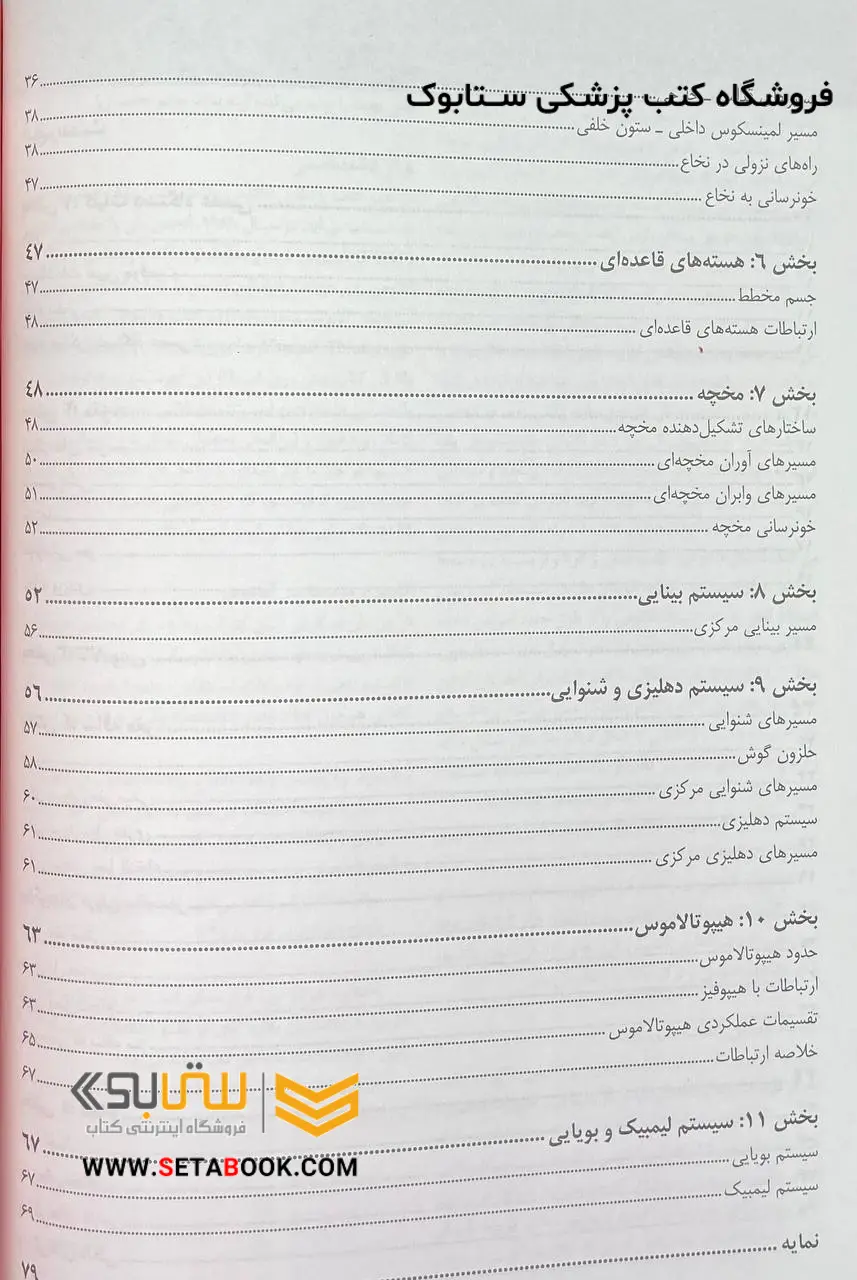 فروشگاه کتب پزشکی ستابوک
۳۶
مسیر لمینسکوس داخلی ـ ستون خلفی ۳۸
راه‌های نزولی در نخاع ۳۸
خونرسانی به نخاع ۴۷
بخش ۶: هسته‌های قاعده‌ای ۴۷
جسم مخطط ۴۷
ارتباطات هسته‌های قاعده‌ای ۴۸
بخش ۷: مخچه ۴۸
ساختارهای تشکیل‌دهنده مخچه ۴۸
مسیرهای آوران مخچه‌ای ۵۰
مسیرهای وابران مخچه‌ای ۵۱
خونرسانی مخچه ۵۲
بخش ۸: سیستم بینایی ۵۲
مسیر بینایی مرکزی ۵۶
بخش ۹: سیستم دهلیزی و شنوایی ۵۶
مسیرهای شنوایی ۵۷
حلزون گوش ۵۸
مسیرهای شنوایی مرکزی ۶۰
سیستم دهلیزی ۶۱
مسیرهای دهلیزی مرکزی ۶۱
بخش ۱۰: هیپوتالاموس ۶۳
حدود هیپوتالاموس ۶۳
ارتباطات با هیپوفیز ۶۳
تقسیمات عملکردی هیپوتالاموس ۶۵
خلاصه ارتباطات ۶۷
ستابوک
فروشگاه اینترنتی کتاب
بخش ۱۱: سیستم لیمبیک و بویایی ۶۷
WWW.SETABOOK.COM
سیستم بویایی ۶۷
سیستم لیمبیک ۶۹
نمایه ۷۹